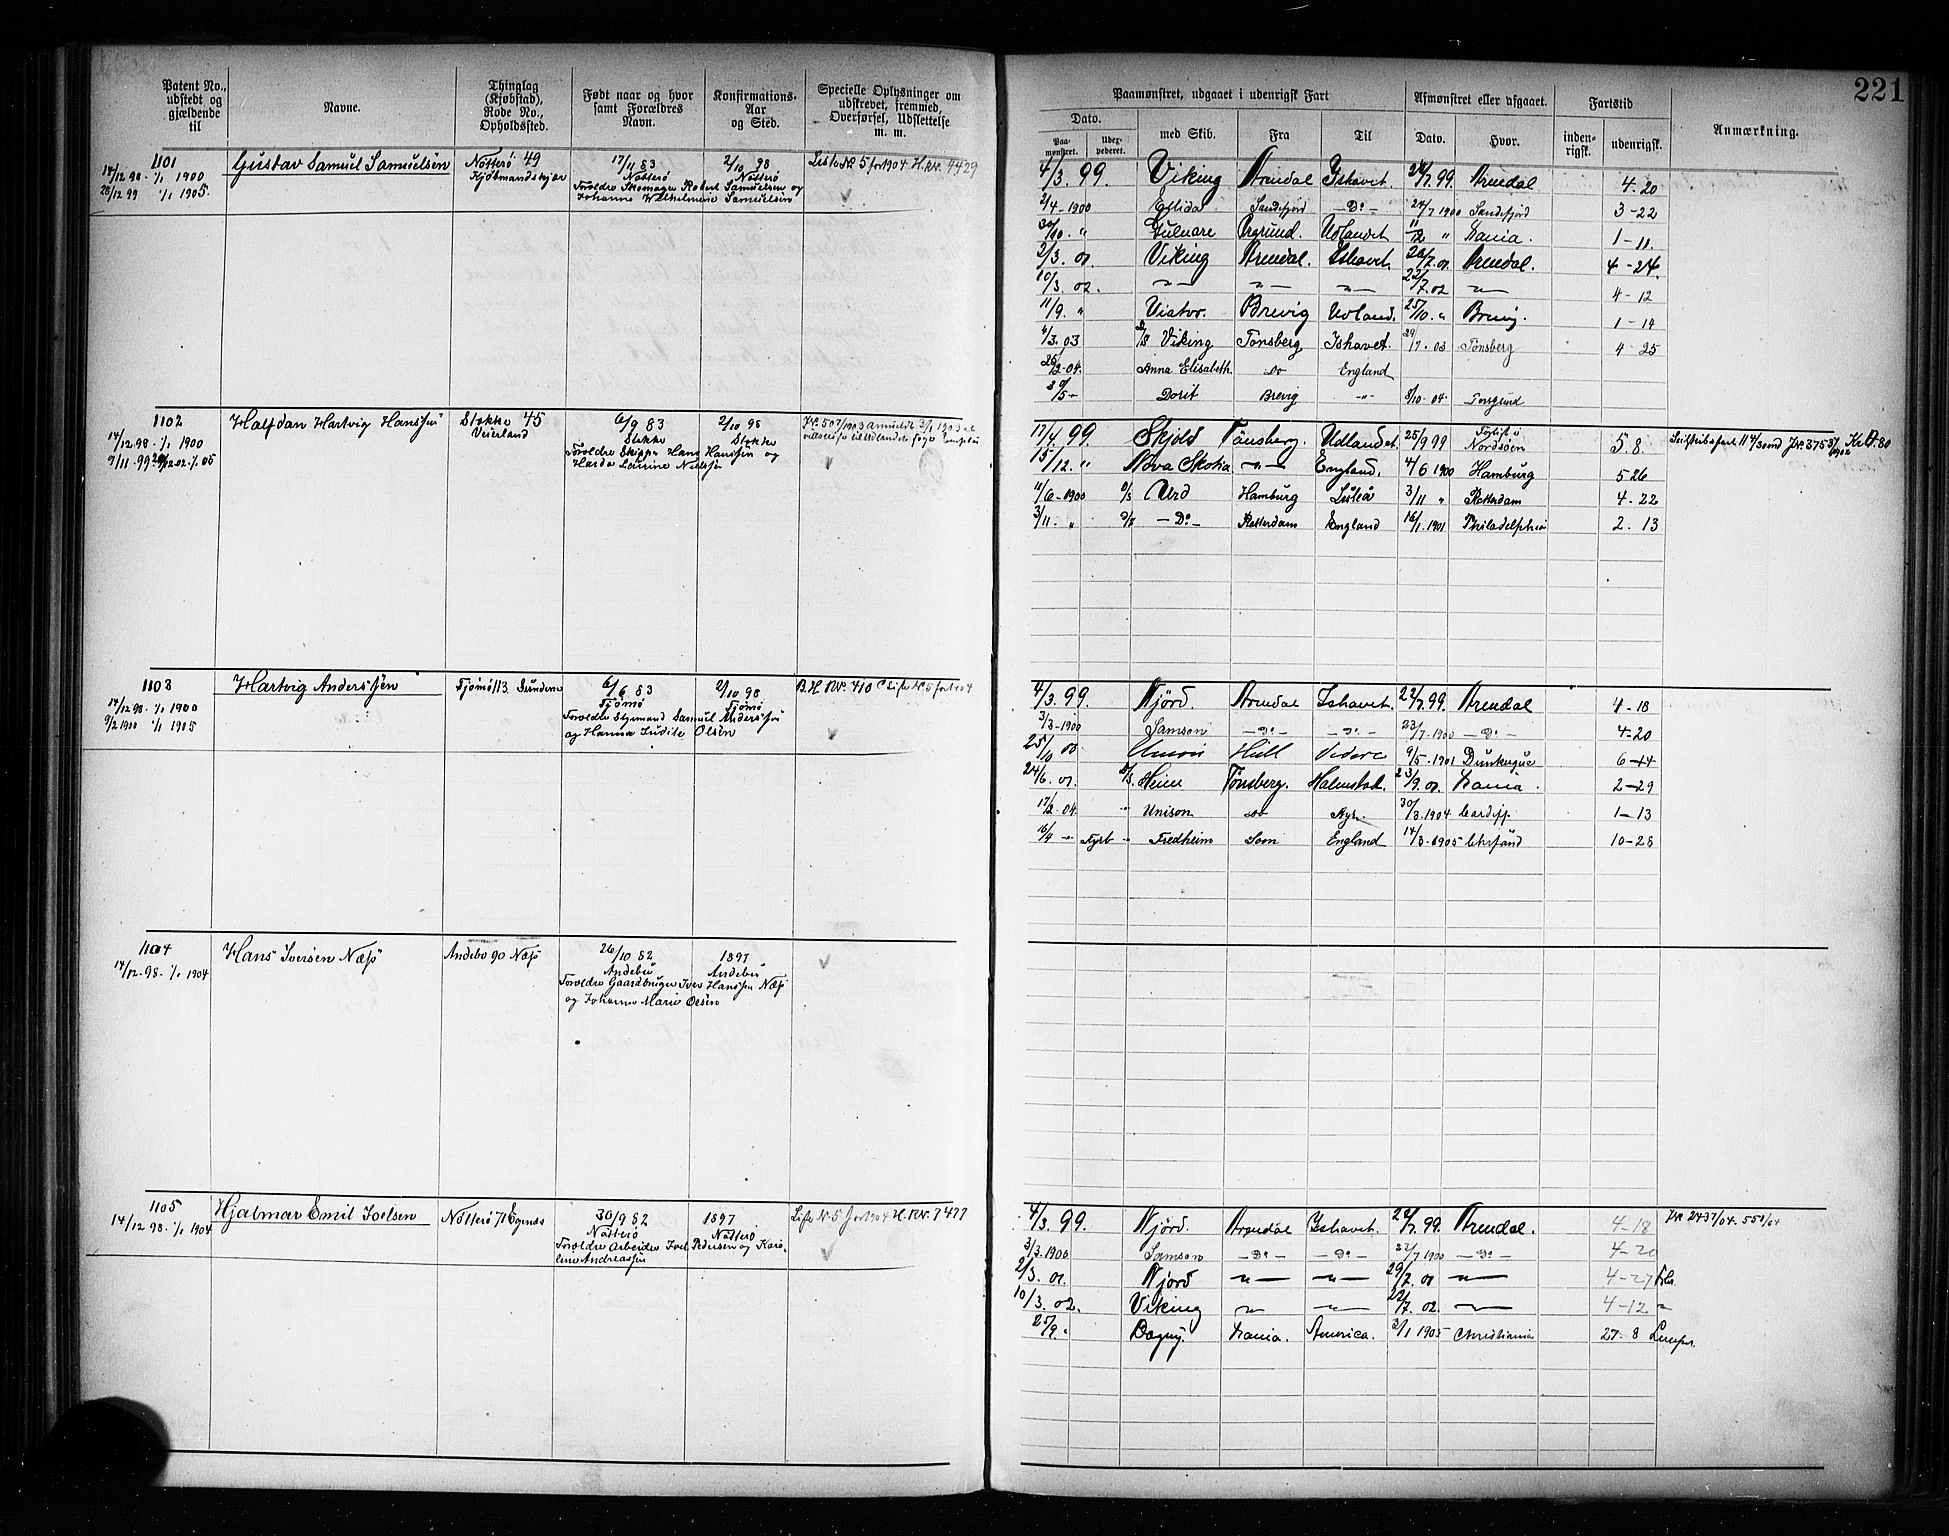 221
Patent No., udstedt og gjældende til
Navne.
Thinglag (Kjøbstad), Rode No., Opholdssted.
Født naar og hvor samt Forældres Navn.
Konfirmations-Aar og Sted.
Specielle Oplysninger om udskrevet, fremmed, Overførsel, Udslettelse m. m.
Paamønstret, udgaaet i udenrigsk Fart
Afmønstret eller afgaaet.
Fartstid
Anmærkning.
Dato.
Paa-mønstret.
med Skib.
Fra
Til
Dato.
Hvor.
inden-rigsk.
udenrigsk.
1101
14/12 98 - 1/1 1900
28/12 99 1/1 1905.
Gustav Samuel Samuelsen
Nøtterø 49
Kjøbmandskjær
17/11 83
Nøtterø
Foreldre Skomager Robert Samuelsen og
Johanne Wilhelmine Samuelsen
2/10 98
Nøtterø
Liste No 5 for 1904 H. RNo. 4429
4/3. 99. Viking Arendal Ishavet. 24/7. 99. Arendal 4. 20
2/4 - 1900 Ellida Sandefjord - Do - 24/7 1900 Sandefjord 3-22
30/10. " Gulnare Ørgrund. Udlandet 11/12 " Xania. 1-11.
2/3. 01. Viking Arendal. Ishavet. 26/7. 01. Arendal. 4-24.
10/3. 02. — — — 22/7. 02 — 4-12
11/9. " Viator. Brevig Udland. 25/10. " Brevig. 1-14
4/3. 03 D/S Viking Tønsberg Ishavet. 29/7 - 03 Tønsberg 4 25
25/2-04. Anna Elisabeth do England
30/5 - Dorit Brevig -"- 8/10-04. Porsgrund
1102
14/12 98. - 1/1 1900
9/11. 99 29/12.02. 1/1 05
Halfdan Hartvig Hanssen
Stokke 45
Veierland
6/9 83
Stokke
Foreldre Skipper Hans Hanssen og
Harda Lovrine Nilssen
2/10 98
Stokke
JNo 507/1903 Anmeldt 3/1 1903
17/4. 99. Skjold Tønsberg. Udlandet. 25/9 99 Forlist i Nordsøen 5. 8.
15/12. " Nova Skotia — England. 4/6 1900 Hamburg 5 26
11/6-1900 D/S Urd Hamburg Luleå 3/11 " Rotterdam 4. 22
3/11. " D/S - Do - Rotterdam England 16/1. 1901 Philadelphia 2. 13
1103
14/12 98 - 1/1 1900
9/2 1900 1/1 1905
Hartvig Anderssen
Tjømø 113. Sundene
6/6 83
Tjømø
Foreldre Styrmand Samuel Anderssen
og Hanna Ludite Olsen
2/10 98
Tjømø
B. H. RNo. 410 C Liste No 5 for 1904
4/3. 99. Njørd. Arendal Ishavet. 22/7. 99. Arendal 4-18
3/3-1900 Samson - Do - - Do - 23/7. 1900 - Do - 4-20
25/10 00 Unison Hull Videre 9/5. 1901 Dunkerque 6-14
24/6. 01. D/S. Heim Tønsberg. Halmstad. 23/9. 01. Xania. 2-29
17/2. 04. " Unison do Ayr. 30/3. 1904 Cardiff. 1-13
Fredheim Soon England 14/3. 1905 Chrsand 10-28
1104
14/12. 98. - 1/1 1904
Hans Iversen Næs
Andebo 90 Næs
26/10 82
Andebu
Foreldre Gaardbruger Iver Hanssen Næs
og Johanne Marie Olsen
1897
Andebu
1105
14/12 98. 1/1 1904
Hjalmar Emil Joelsen
Nøtterø 71 Egenæs
30/9 82
Nøtterø
Foreldre Arbeider Joel Pedersen og Karo-
line Andreassen
1897
Nøtterø
Liste No 5 for 1904 H. RNo. 7477
4/3. 99. Njørd. Arendal Ishavet. 22/7. 99. Arendal. 4-18
3/3. 1900 Samson - Do - - Do - 22/7 1900 - Do - 4-20
2/3. 01. Njørd — — 29/7. 01 — 4-27
10/3. 02. Viking — — 22/7. 02. — 4-12
25/9. " Dagny. Xania. America. 3/1 1905 Christiania 27- 8
JNo 2437/04. 551/04